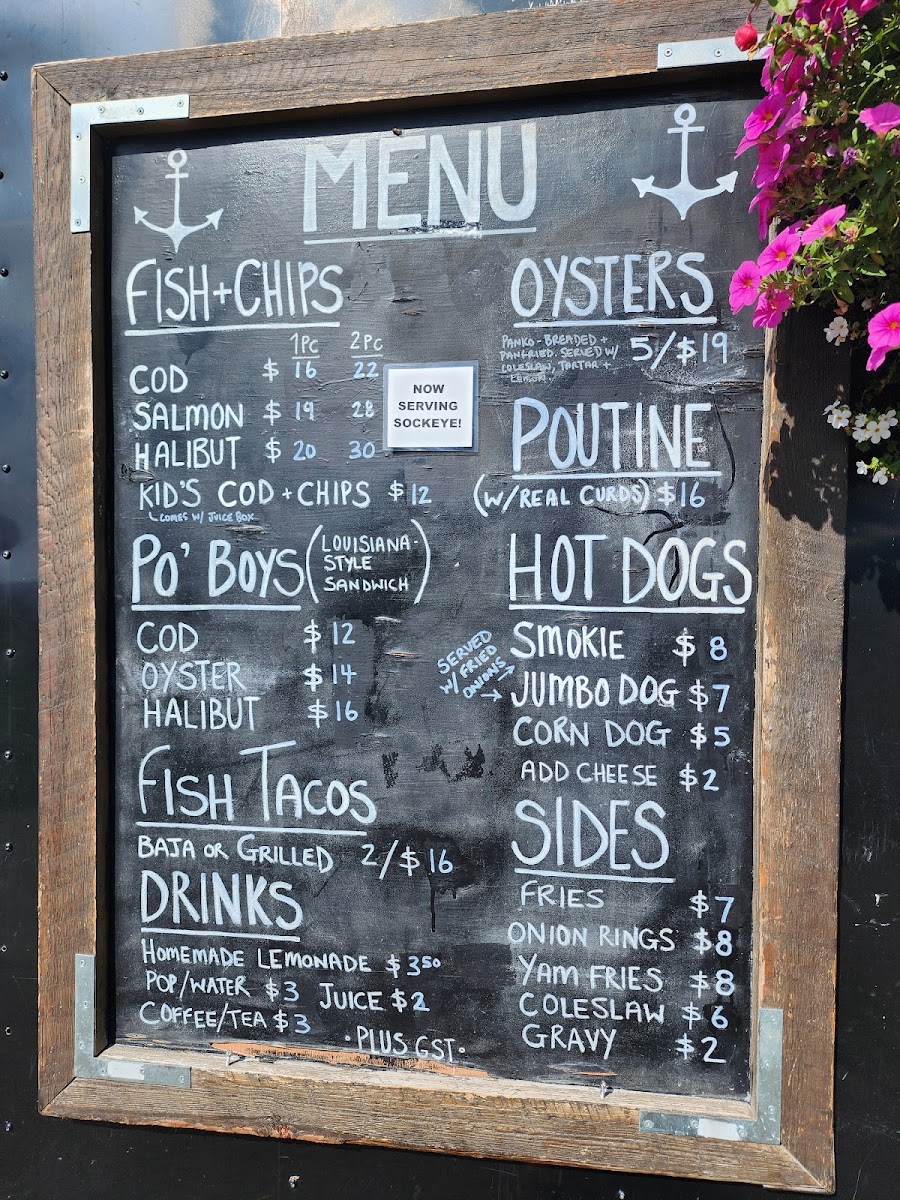 MENU
FISH+CHIPS
1PC 2PC
COD $ 16 22
SALMON $ 19 28
HALIBUT $ 20 30
KID'S COD + CHIPS $12
COMES W/ JUICE BOX
NOW
SERVING
SOCKEYE!
PO' BOYS (LOUISIANA-
STYLE
SANDWICH)
COD $12
OYSTER $14
HALIBUT $16
FISH TACOS
BAJA OR GRILLED 2/$16
DRINKS
HOMEMADE LEMONADE $3⁵⁰
POP/WATER $3 JUICE $2
COFFEE/TEA $3
• PLUS GST •
OYSTERS
PANKO-BREADED +
PANFRIED. SERVED W/
COLESLAW, TARTAR +
LEMON.
5/$19
POUTINE
(W/REAL CURDS) $16
HOT DOGS
SERVED
W/ FRIED
ONIONS
SMOKIE $8
JUMBO DOG $7
CORN DOG $5
ADD CHEESE $2
SIDES
FRIES $7
ONION RINGS $8
YAM FRIES $8
COLESLAW $6
GRAVY $2